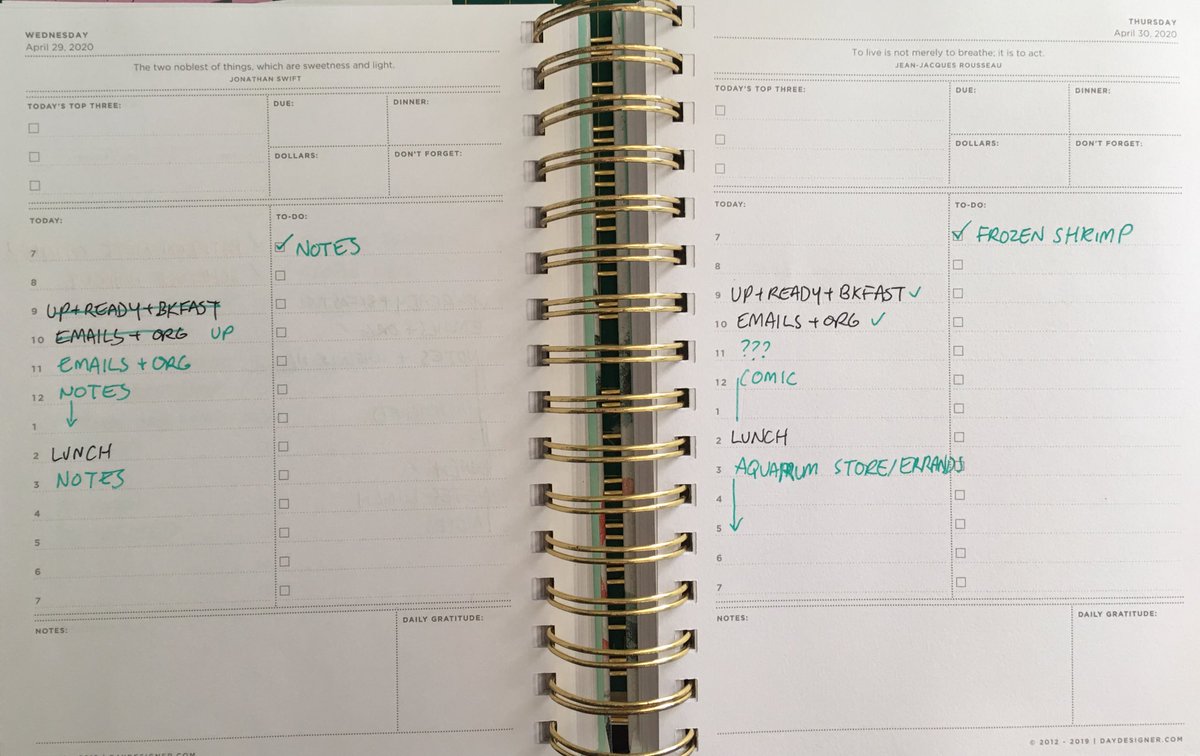 WEDNESDAY
April 29, 2020
The two noblest of things, which are sweetness and light.
JONATHAN SWIFT
TODAY'S TOP THREE:
DUE:
DINNER:
DOLLARS:
DON'T FORGET:
TODAY:
TO-DO:
7
NOTES
8
9 UP+READY+BKFAST
10 EMAILS + ORG UP
11 EMAILS + ORG
12 NOTES
1
2 LUNCH
3 NOTES
4
5
6
7
NOTES:
DAILY GRATITUDE:
THURSDAY
April 30, 2020
To live is not merely to breathe; it is to act.
JEAN-JACQUES ROUSSEAU
TODAY'S TOP THREE:
DUE:
DINNER:
DOLLARS:
DON'T FORGET:
TODAY:
TO-DO:
7
FROZEN SHRIMP
8
9 UP+READY+BKFAST ✓
10 EMAILS + ORG ✓
11 ???
12 COMIC
1
2 LUNCH
3 AQUARIUM STORE/ERRANDS
4
5
6
7
NOTES:
DAILY GRATITUDE:
© 2012 - 2019 | DAYDESIGNER.COM